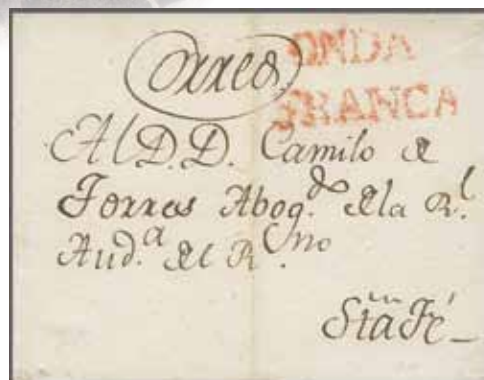 Correo
ONDA
FRANCA
Al D.D. Camilo de
Torres Abog.do de la Rl.
Aud.a del R.no
en
Sta Fé